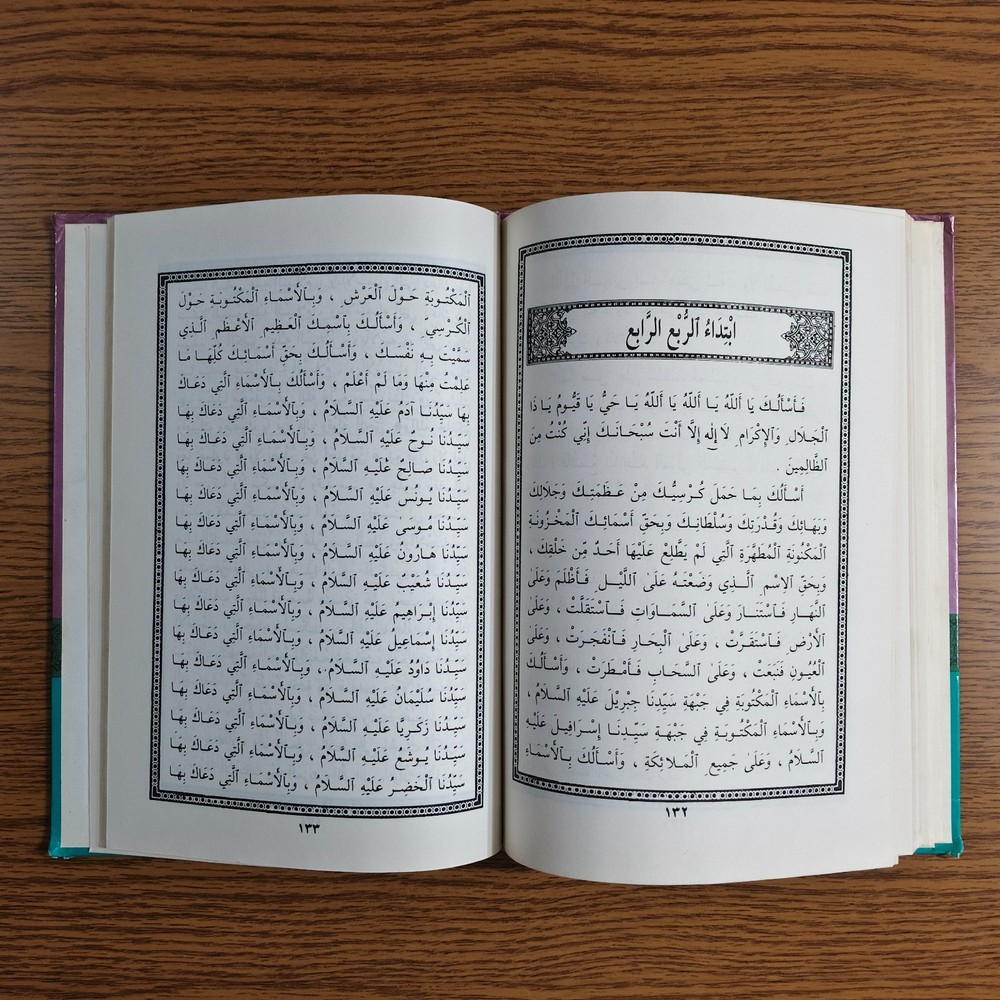 ابْتِدَاءُ ٱلرُّبْعِ الرَّابِعِ
فَأَسْأَلُكَ يَا اَللّٰهُ يَا اَللّٰهُ يَا اَللّٰهُ يَا حَيُّ يَا قَيُّومُ يَا ذَا
ٱلْجَلَالِ وَٱلإِكْرَامِ لَا إِلٰهَ إِلَّا أَنْتَ سُبْحَانَكَ إِنِّي كُنْتُ مِنَ
ٱلظَّالِمِينَ .
أَسْأَلُكَ بِمَا حَمَلَ كُرْسِيُّكَ مِنْ عَظَمَتِكَ وَجَلَالِكَ
وَبَهَائِكَ وَقُدْرَتِكَ وَسُلْطَانِكَ وَبِحَقِّ أَسْمَائِكَ ٱلْمَخْزُونَةِ
ٱلْمَكْنُونَةِ ٱلْمُطَهَّرَةِ ٱلَّتِي لَمْ يَطَّلِعْ عَلَيْهَا أَحَدٌ مِن خَلْقِكَ ،
وَبِحَقِّ ٱلِاسْمِ ٱلَّذِي وَضَعْتَهُ عَلَىٰ ٱللَّيْلِ فَأَظْلَمَ وَعَلَىٰ
ٱلنَّهَارِ فَٱسْتَنَارَ وَعَلَىٰ ٱلسَّمَاوَاتِ فَٱسْتَقَلَّتْ ، وَعَلَىٰ
ٱلأَرْضِ فَٱسْتَقَرَّتْ ، وَعَلَىٰ ٱلْبِحَارِ فَٱنْفَجَرَتْ ، وَعَلَىٰ
ٱلْعُيُونِ فَنَبَعَتْ ، وَعَلَىٰ ٱلسَّحَابِ فَأَمْطَرَتْ ، وَأَسْأَلُكَ
بِٱلأَسْمَاءِ ٱلْمَكْتُوبَةِ فِي جَبْهَةِ سَيِّدِنَا جِبْرِيلَ عَلَيْهِ ٱلسَّلَامُ ،
وَبِٱلأَسْمَاءِ ٱلْمَكْتُوبَةِ فِي جَبْهَةِ سَيِّدِنَا إِسْرَافِيلَ عَلَيْهِ
ٱلسَّلَامُ ، وَعَلَىٰ جَمِيعِ ٱلْمَلَائِكَةِ ، وَأَسْأَلُكَ بِٱلأَسْمَاءِ
١٣٢
ٱلْمَكْتُوبَةِ حَوْلَ ٱلْعَرْشِ ، وَبِٱلأَسْمَاءِ ٱلْمَكْتُوبَةِ حَوْلَ
ٱلْكُرْسِيِّ ، وَأَسْأَلُكَ بِٱسْمِكَ ٱلْعَظِيمِ ٱلأَعْظَمِ ٱلَّذِي
سَمَّيْتَ بِهِ نَفْسَكَ ، وَأَسْأَلُكَ بِحَقِّ أَسْمَائِكَ كُلِّهَا مَا
عَلِمْتُ مِنْهَا وَمَا لَمْ أَعْلَمْ ، وَأَسْأَلُكَ بِٱلأَسْمَاءِ ٱلَّتِي دَعَاكَ
بِهَا سَيِّدُنَا آدَمُ عَلَيْهِ ٱلسَّلَامُ ، وَبِٱلأَسْمَاءِ ٱلَّتِي دَعَاكَ بِهَا
سَيِّدُنَا نُوحٌ عَلَيْهِ ٱلسَّلَامُ ، وَبِٱلأَسْمَاءِ ٱلَّتِي دَعَاكَ بِهَا
سَيِّدُنَا صَالِحٌ عَلَيْهِ ٱلسَّلَامُ ، وَبِٱلأَسْمَاءِ ٱلَّتِي دَعَاكَ بِهَا
سَيِّدُنَا يُونُسُ عَلَيْهِ ٱلسَّلَامُ ، وَبِٱلأَسْمَاءِ ٱلَّتِي دَعَاكَ بِهَا
سَيِّدُنَا مُوسَىٰ عَلَيْهِ ٱلسَّلَامُ ، وَبِٱلأَسْمَاءِ ٱلَّتِي دَعَاكَ بِهَا
سَيِّدُنَا هَارُونُ عَلَيْهِ ٱلسَّلَامُ ، وَبِٱلأَسْمَاءِ ٱلَّتِي دَعَاكَ بِهَا
سَيِّدُنَا شُعَيْبٌ عَلَيْهِ ٱلسَّلَامُ ، وَبِٱلأَسْمَاءِ ٱلَّتِي دَعَاكَ بِهَا
سَيِّدُنَا إِبْرَاهِيمُ عَلَيْهِ ٱلسَّلَامُ ، وَبِٱلأَسْمَاءِ ٱلَّتِي دَعَاكَ بِهَا
سَيِّدُنَا إِسْمَاعِيلُ عَلَيْهِ ٱلسَّلَامُ ، وَبِٱلأَسْمَاءِ ٱلَّتِي دَعَاكَ بِهَا
سَيِّدُنَا دَاوُدُ عَلَيْهِ ٱلسَّلَامُ ، وَبِٱلأَسْمَاءِ ٱلَّتِي دَعَاكَ بِهَا
سَيِّدُنَا سُلَيْمَانُ عَلَيْهِ ٱلسَّلَامُ ، وَبِٱلأَسْمَاءِ ٱلَّتِي دَعَاكَ بِهَا
سَيِّدُنَا زَكَرِيَّا عَلَيْهِ ٱلسَّلَامُ ، وَبِٱلأَسْمَاءِ ٱلَّتِي دَعَاكَ بِهَا
سَيِّدُنَا يُوشَعُ عَلَيْهِ ٱلسَّلَامُ ، وَبِٱلأَسْمَاءِ ٱلَّتِي دَعَاكَ بِهَا
سَيِّدُنَا ٱلْخَضِرُ عَلَيْهِ ٱلسَّلَامُ ، وَبِٱلأَسْمَاءِ ٱلَّتِي دَعَاكَ بِهَا
١٣٣